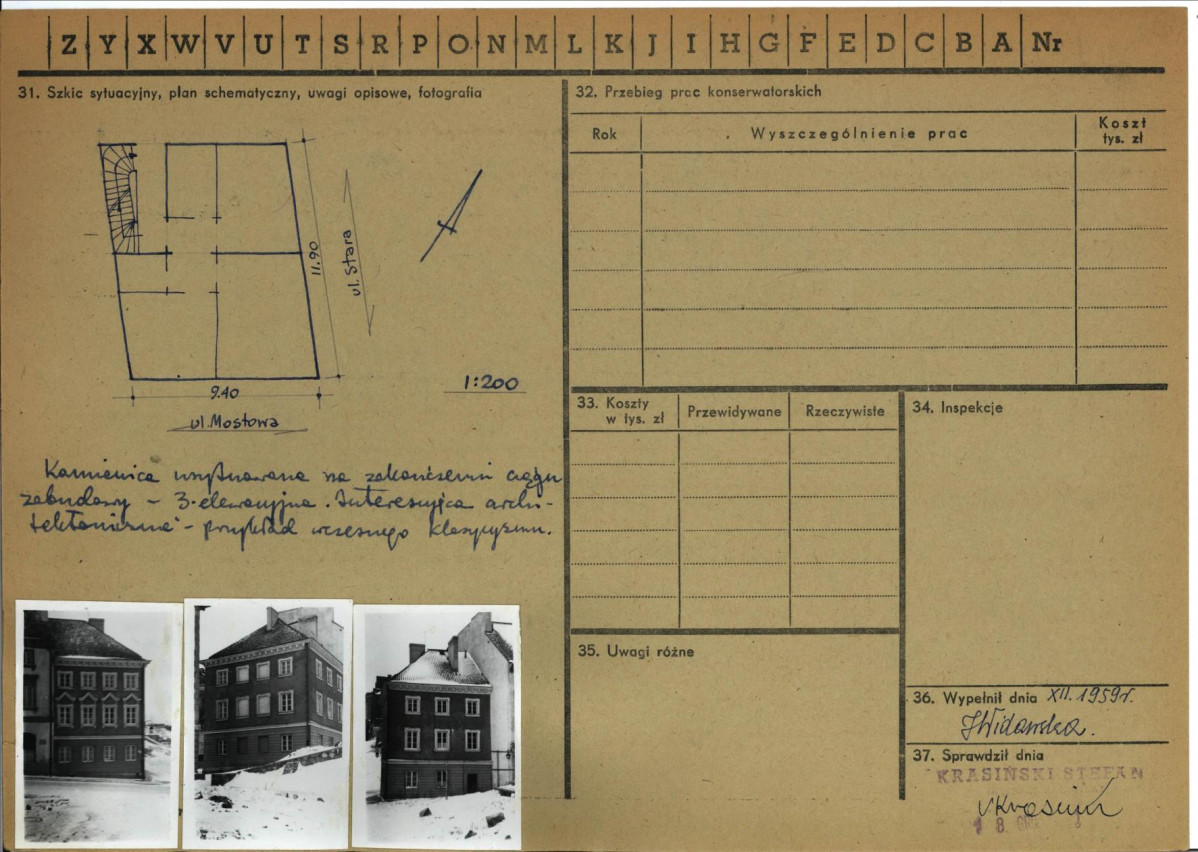 Z Y X W V U T S R P O N M L K J I H G F E D C B A Nr
31. Szkic sytuacyjny, plan schematyczny, uwagi opisowe, fotografia
11.90
ul. Stara
9.40
1:200
ul. Mostowa
Kamienica usytuowana na zakończeniu ciągu
zabudowy – 3-elewacyjna. Interesująca archi-
tektonicznie – przykład wczesnego klasycyzmu.
32. Przebieg prac konserwatorskich
Rok Wyszczególnienie prac Koszt
tys. zł
33. Koszty
w tys. zł Przewidywane Rzeczywiste
34. Inspekcje
35. Uwagi różne
36. Wypełnił dnia XII. 1959 r.
JWidawska.
37. Sprawdził dnia
KRASIŃSKI STEFAN